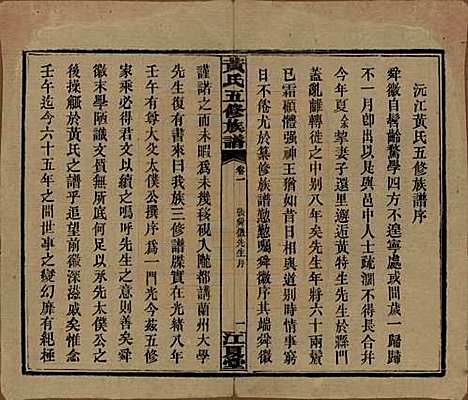 沅江黃氏五修族譜序
舜徽自髫齡騖學四方不遑寧處或時一歸歸
不一月即出以此與邑中人士疏濶不得長合幷
今年夏以事挈妻子還里邂逅黃特生先生於
蓋亂離轉徙之中別八年矣先生年將六十兩鬢
已霜頼體強神王猶如昔日相與道別後時情事窮
日不倦尤於纂修族譜懃懃囑舜徽序其端舜徽
黃氏五修族譜
卷一
張舜徽先生序
一
江夏堂
謹諾之而未暇爲未幾移硯入隴都講蘭州大學
先生復有書來曰我族三修譜牒實在光緒八年
壬午有尊大父太僕公撰序爲一門光今茲五修
家乘必得君文以爲重嗚呼先生之意則善矣舜
徽末學陋識文質無所底何足與於斯耶然太僕公之
後操觚於黃氏之譜乎追望前徽深滋戚矣惟念
壬午迄今六十五年之間世事之變幻靡有紀極